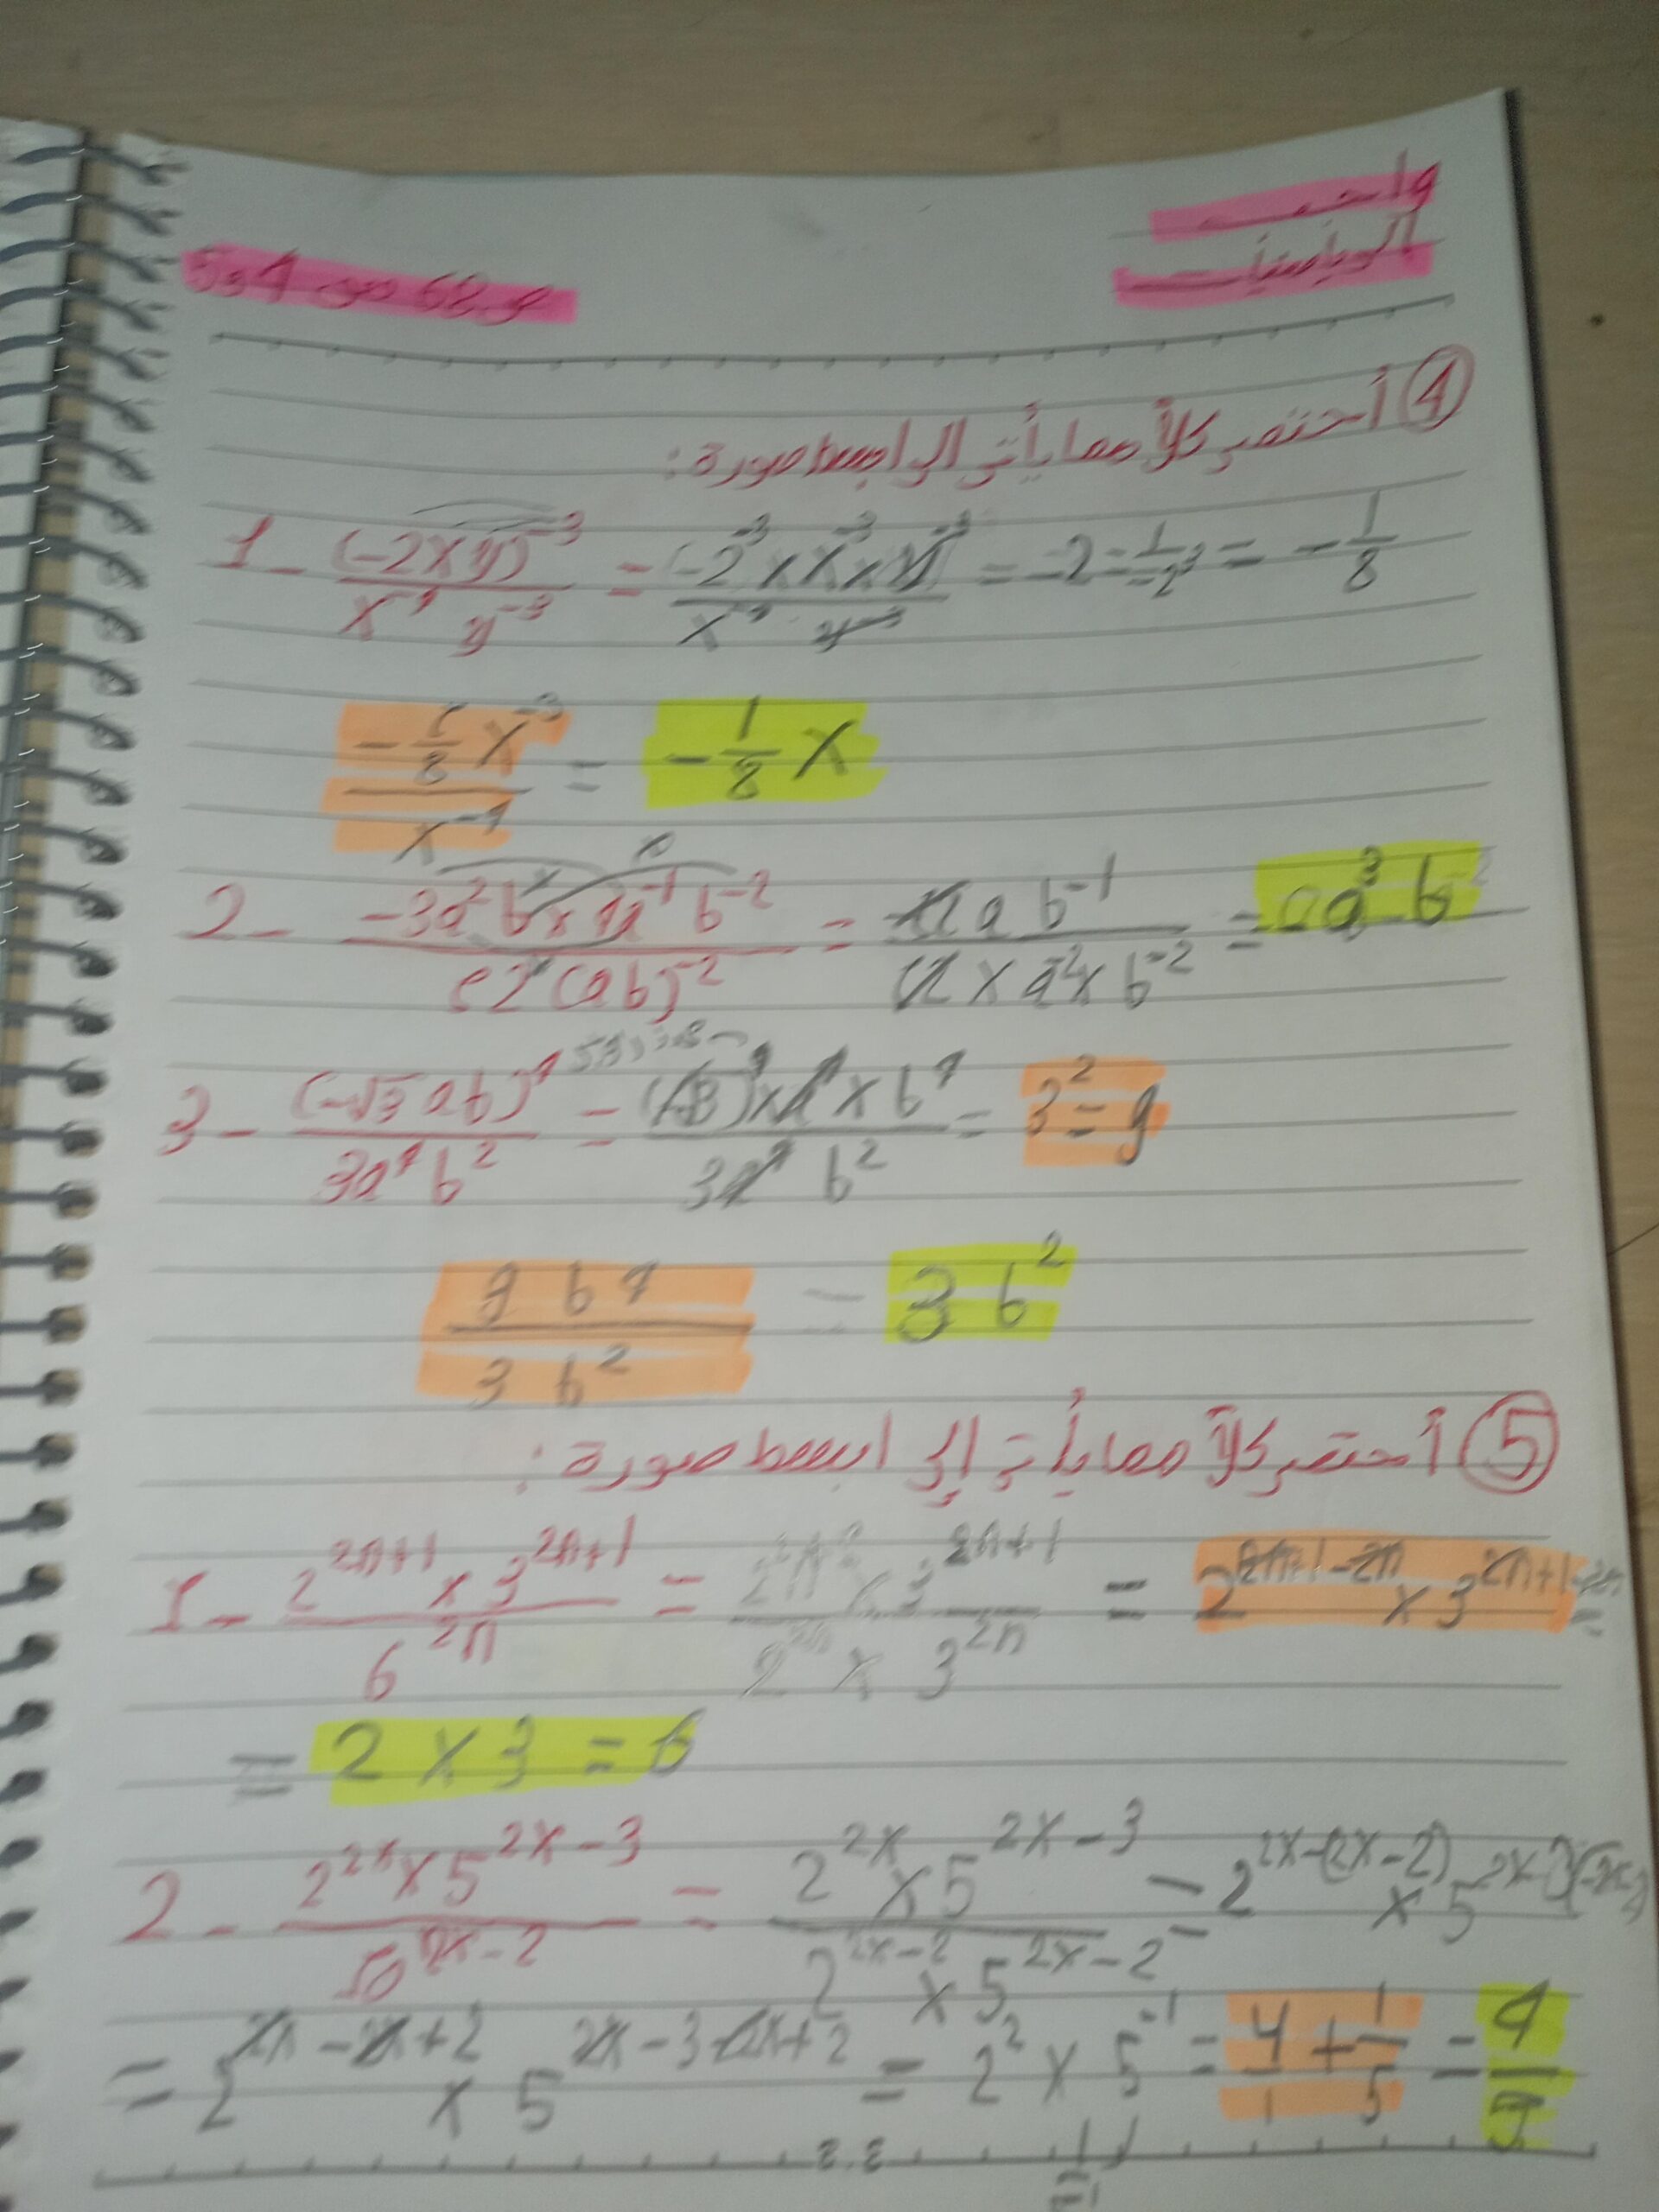 واجب
الرياضيات
4 و 5 ص 62
④ أختصر كلاً مما يأتي الى ابسط صورة:
1- (-2xy)⁻³ / x⁻⁴ y⁻³ = (-2⁻³ × x⁻³ × y⁻³) / x⁻⁴ y⁻³ = -2 = 1/-2³ = - 1/8
- 1/8 x⁻³ / x⁻⁴ = - 1/8 x
2- -3a²b × 4a⁻¹ b⁻² / (ab)⁻² = a b⁻¹ / a⁻² × b⁻² = a³ b
3- (-√3 ab)⁴ / 3a⁴ b² = × a⁴ × b⁴ / 3a⁴ b² = 3² = 9
9 b⁴ / 3 b² = 3 b²
⑤ أختصر كلاً مما يأتي إلى ابسط صورة:
1- 2²ⁿ⁺¹ × 3²ⁿ⁺¹ / 6²ⁿ = 2²ⁿ⁺¹ × 3²ⁿ⁺¹ / 2²ⁿ × 3²ⁿ = 2²ⁿ⁺¹⁻²ⁿ × 3²ⁿ⁺¹⁻²ⁿ =
= 2 × 3 = 6
2- 2²ˣ × 5²ˣ⁻³ / 10²ˣ⁻² = 2²ˣ × 5²ˣ⁻³ / 2²ˣ⁻² × 5²ˣ⁻² = 2²ˣ⁻⁽²ˣ⁻²⁾ × 5²ˣ⁻³
= 2²ˣ⁻²ˣ⁺² × 5²ˣ⁻³⁻²ˣ⁺² = 2² × 5⁻¹ = 4/1 + 1/5 = 4/5